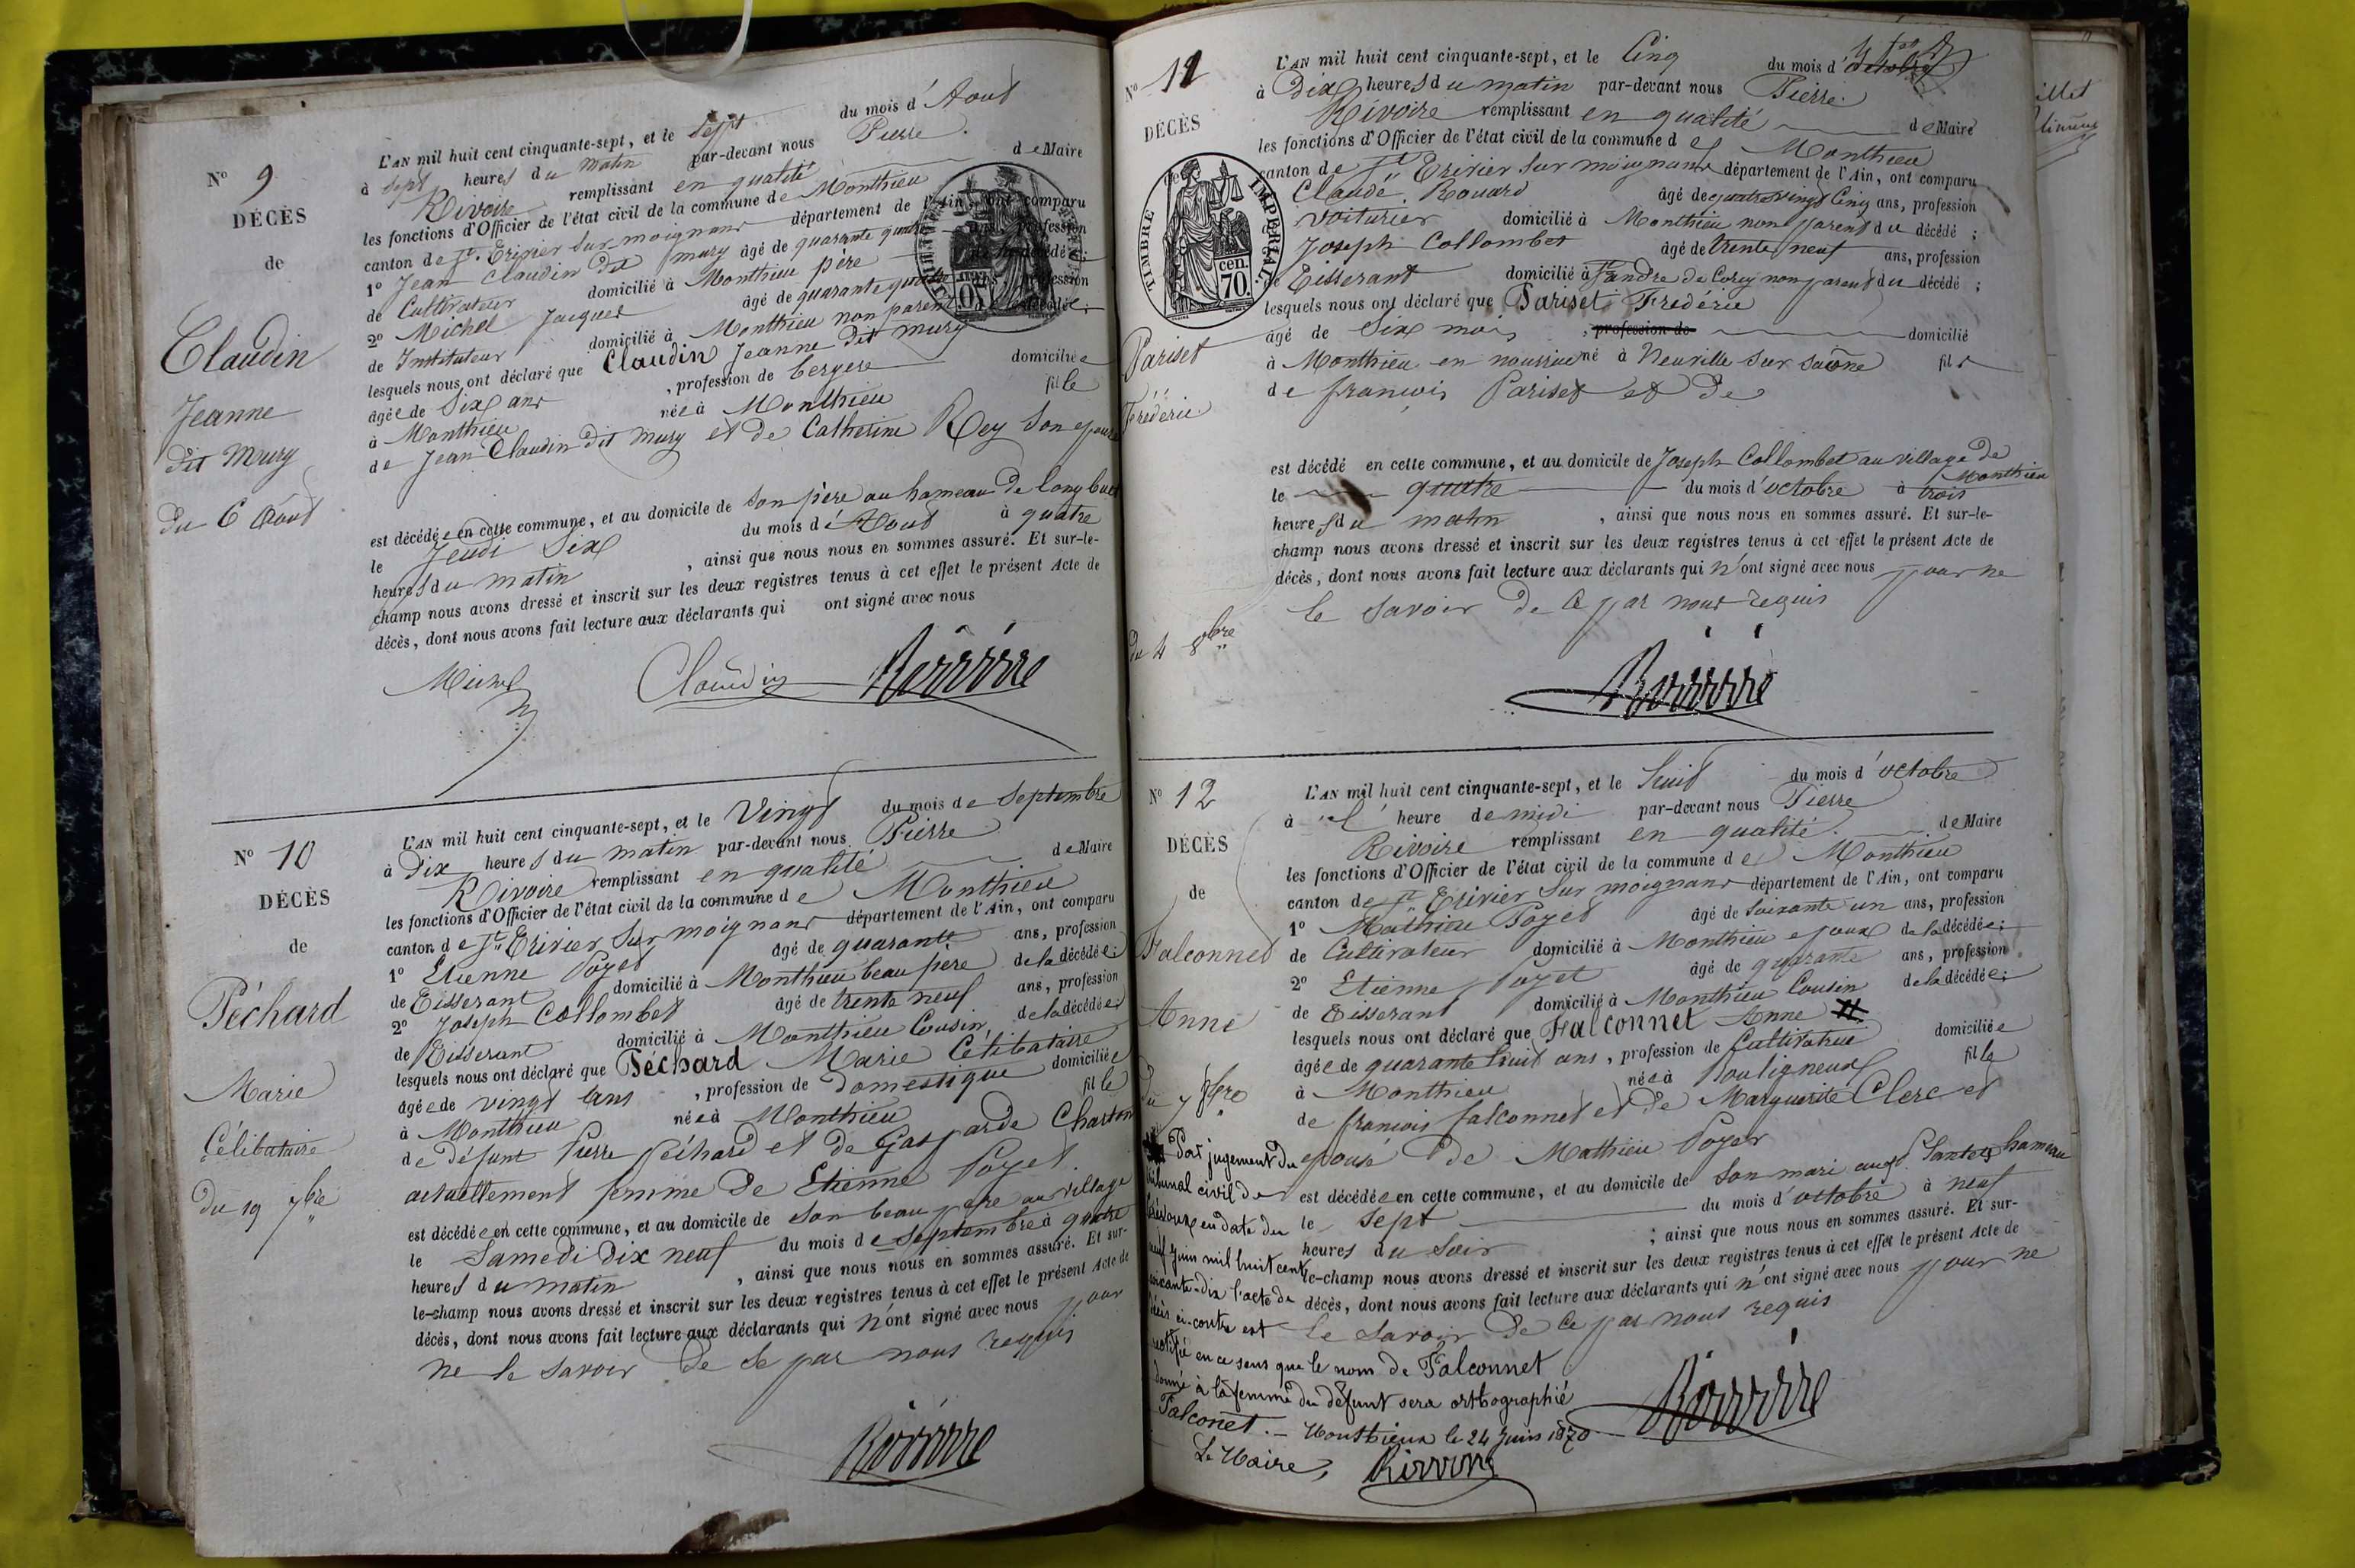 N° 9
DÉCÈS
de
Claudin
Jeanne
dit Mury
du 6 Août
L'AN mil huit cent cinquante-sept, et le sept du mois d'Aout
à sept heures du matin par-devant nous Pierre
Rivoire remplissant en qualité de Maire
les fonctions d'Officier de l'état civil de la commune de Monthieu
canton de St. Trivier sur moignans département de l'Ain, ont comparu
1° Jean Claudin dit mury âgé de quarante quatre ans, profession
de Cultivateur domicilié à Monthieu père de la décédée;
2° Michel Jacques âgé de quarante quatre ans, profession
de Instituteur domicilié à Monthieu non parent de la décédée;
lesquels nous ont déclaré que Claudin Jeanne dit mury
âgée de Six ans, profession de bergere domiciliée
à Monthieu née à Monthieu fille
de Jean Claudin dit Mury et de Catherine Rey son epouse
est décédée en cette commune, et au domicile de son père au hameau de
le Jeudi Six du mois d'Aout à quatre
heures du matin, ainsi que nous nous en sommes assuré. Et sur-le-
champ nous avons dressé et inscrit sur les deux registres tenus à cet effet le présent Acte de
décès, dont nous avons fait lecture aux déclarants qui ont signé avec nous
Michel Claudin Rivoire
N° 10
DÉCÈS
de
Péchard
Marie
Célibataire
du 19 7bre
L'AN mil huit cent cinquante-sept, et le Vingt du mois de Septembre
à Dix heures du matin par-devant nous Pierre
Rivoire remplissant en qualité de Maire
les fonctions d'Officier de l'état civil de la commune de Monthieu
canton de St Trivier sur moignans département de l'Ain, ont comparu
1° Etienne Poyet âgé de quarante ans, profession
de Tisserant domicilié à Monthieu beau pere de la décédée;
2° Joseph Collombet âgé de trente neuf ans, profession
de Tisserant domicilié à Monthieu Cousin de la décédée;
lesquels nous ont déclaré que Péchard Marie Célibataire
âgée de vingt ans, profession de domestique domiciliée
à Monthieu née à Monthieu fille
de défunt Pierre Péchard et de Gasparde Charton
actuellement femme de Etienne Poyet.
est décédée en cette commune, et au domicile de son beau pere au village
le Samedi Dix neuf du mois de Septembre à quatre
heures du matin, ainsi que nous nous en sommes assuré. Et sur-
le-champ nous avons dressé et inscrit sur les deux registres tenus à cet effet le présent Acte de
décès, dont nous avons fait lecture aux déclarants qui n'ont signé avec nous pour
ne le savoir de Se par nous requis
Rivoire
N° 11
DÉCÈS
TIMBRE IMPÉRIAL
70 cen.
Pariset
Fréderic
du 4 8bre
L'AN mil huit cent cinquante-sept, et le Cinq du mois d'octobre
à Dix heures du matin par-devant nous Pierre
Rivoire remplissant en qualité de Maire
les fonctions d'Officier de l'état civil de la commune de Monthieu
canton de St Trivier sur moignans département de l'Ain, ont comparu
Claude Rouard âgé de quatre vingt Cinq ans, profession
voiturier domicilié à Monthieu non parent du décédé;
Joseph Collombet âgé de trente neuf ans, profession
de Tisserant domicilié à St andre de Corcy non parent du décédé;
lesquels nous ont déclaré que Pariset Frédéric
âgé de Six mois, profession de domicilié
à Monthieu en nourrice né à Neuville sur saône fils
de francois Pariset et de
est décédé en cette commune, et au domicile de Joseph Collombet au village de
Monthieu
le quatre du mois d'octobre à trois
heures du matin, ainsi que nous nous en sommes assuré. Et sur-le-
champ nous avons dressé et inscrit sur les deux registres tenus à cet effet le présent Acte de
décès, dont nous avons fait lecture aux déclarants qui n'ont signé avec nous pour ne
le savoir de Ce par nous requis
Rivoire
N° 12
DÉCÈS
de
Falconnet
Anne
du 7 8bre
L'AN mil huit cent cinquante-sept, et le huit du mois d'octobre
à heure de midi par-devant nous Pierre
Rivoire remplissant en qualité de Maire
les fonctions d'Officier de l'état civil de la commune de Monthieu
canton de St Trivier sur moignans département de l'Ain, ont comparu
1° Mathieu Poyet âgé de soixante un ans, profession
de Cultivateur domicilié à Monthieu epoux de la décédée;
2° Etienne Poyet âgé de quarante ans, profession
de Tisserant domicilié à Monthieu Cousin de la décédée;
lesquels nous ont déclaré que Falconnet Anne
âgée de quarante huit ans, profession de Cultivatrice domiciliée
à Monthieu née à Bouligneux fille
de francois falconnet et de Marguerite Clerc et
epouse de Mathieu Poyet
est décédée en cette commune, et au domicile de son mari au hameau
le sept du mois d'octobre à neuf
heures du soir; ainsi que nous nous en sommes assuré. Et sur-
le-champ nous avons dressé et inscrit sur les deux registres tenus à cet effet le présent Acte de
décès, dont nous avons fait lecture aux déclarants qui n'ont signé avec nous pour ne
le savoir de Ce par nous requis
Rivoire
Par jugement du
tribunal civil de
Trévoux en date du
neuf Juin mil huit cent
soixante-dix l'acte de
décès ci-contre est
rectifié en ce sens que le nom de Falconnet
donné à la femme du défunt sera orthographié
Falconet. — Monthieux le 24 Juin 1870
Le Maire, Rivoire